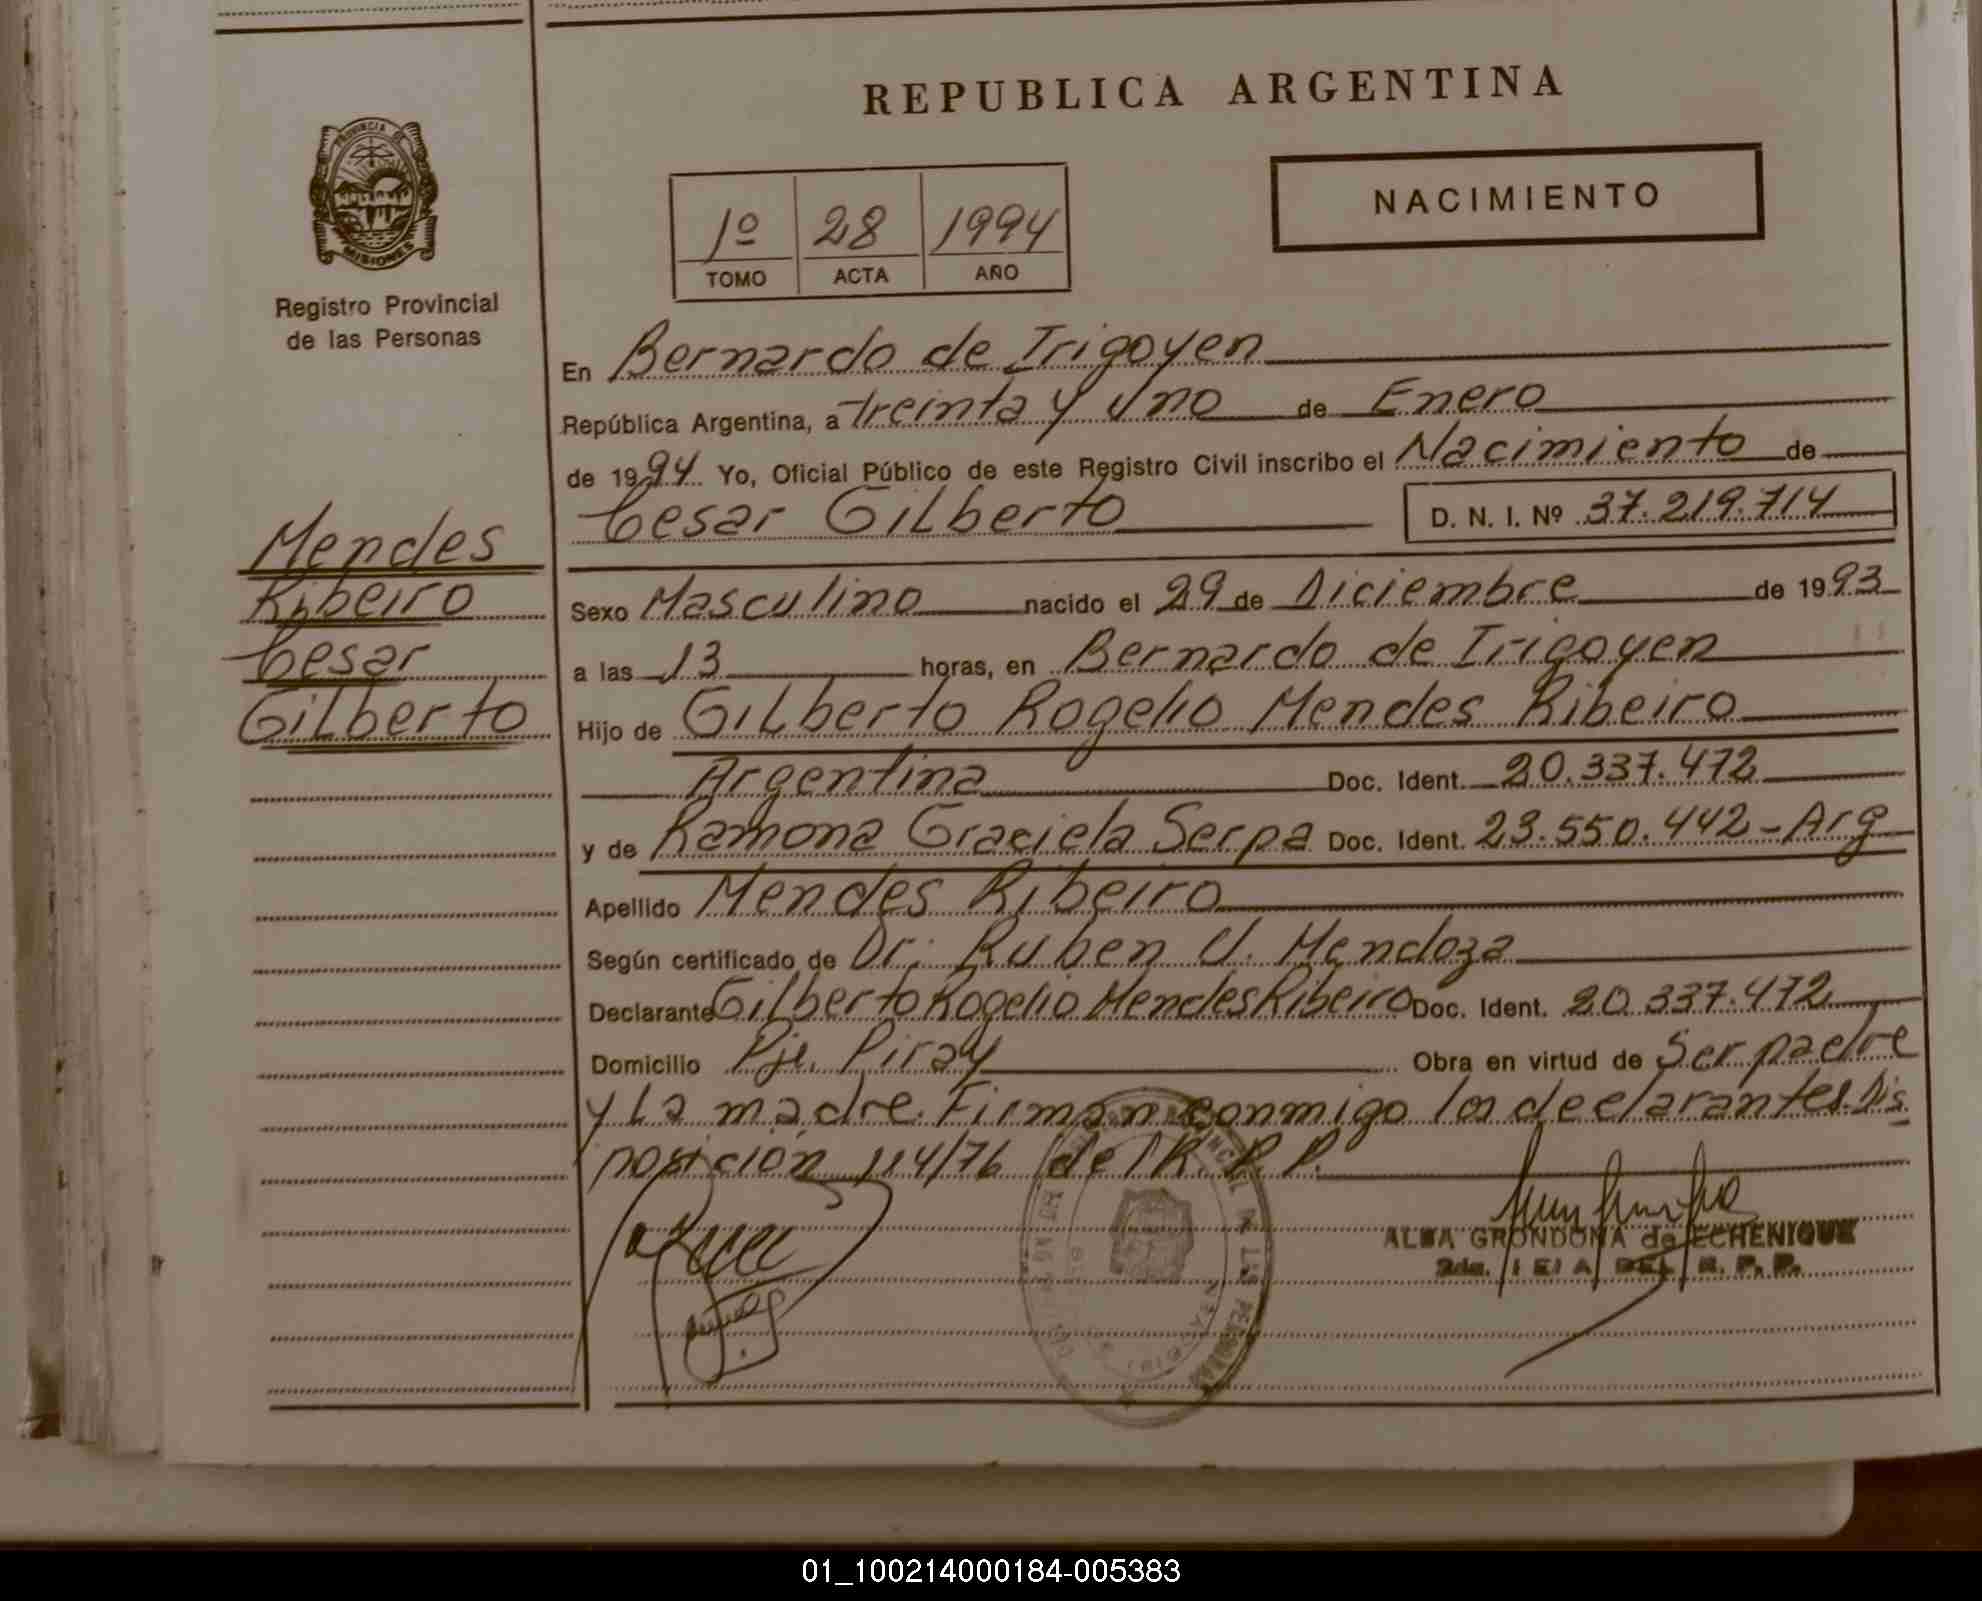 REPUBLICA ARGENTINA
PROVINCIA DE
MISIONES
Registro Provincial
de las Personas
NACIMIENTO
1º 28 1994
TOMO ACTA AÑO
En Bernardo de Irigoyen
República Argentina, a treinta y uno de Enero
de 1994 Yo, Oficial Público de este Registro Civil inscribo el Nacimiento de
Cesar Gilberto D. N. I. Nº 37.219.714
Mendes
Ribeiro
Cesar
Gilberto
Sexo Masculino nacido el 29 de Diciembre de 1993
a las 13 horas, en Bernardo de Irigoyen
Hijo de Gilberto Rogelio Mendes Ribeiro
Argentina Doc. Ident. 20.337.472
y de Ramona Graciela Serpa Doc. Ident. 23.550.442-Arg
Apellido Mendes Ribeiro
Según certificado de Dr. Ruben U. Mendoza
Declarante Gilberto Rogelio Mendes Ribeiro Doc. Ident. 20.337.472
Domicilio Pje. Piray Obra en virtud de Ser padre
y La madre. Firman conmigo los declarantes. Dis
posición 114/76 del R. P. P.
ALBA GRONDONA de ECHENIQUE
DEL R. P. P.
01_100214000184-005383